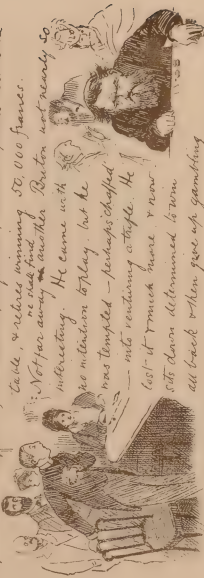 table, & retires winning 50,000 francs.
we shall find
Not far away another Breton not nearly so
interesting. He came with
no intention to play. but he
was tempted – perhaps chaffed
– into venturing a trifle. He
lost it & much more & now
sits down determined to win
all back & then give up gambling